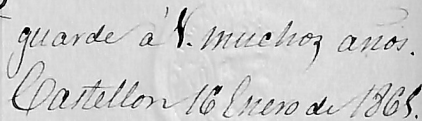 guarde á V. muchos años.
Castellon 16 Enero de 1865.